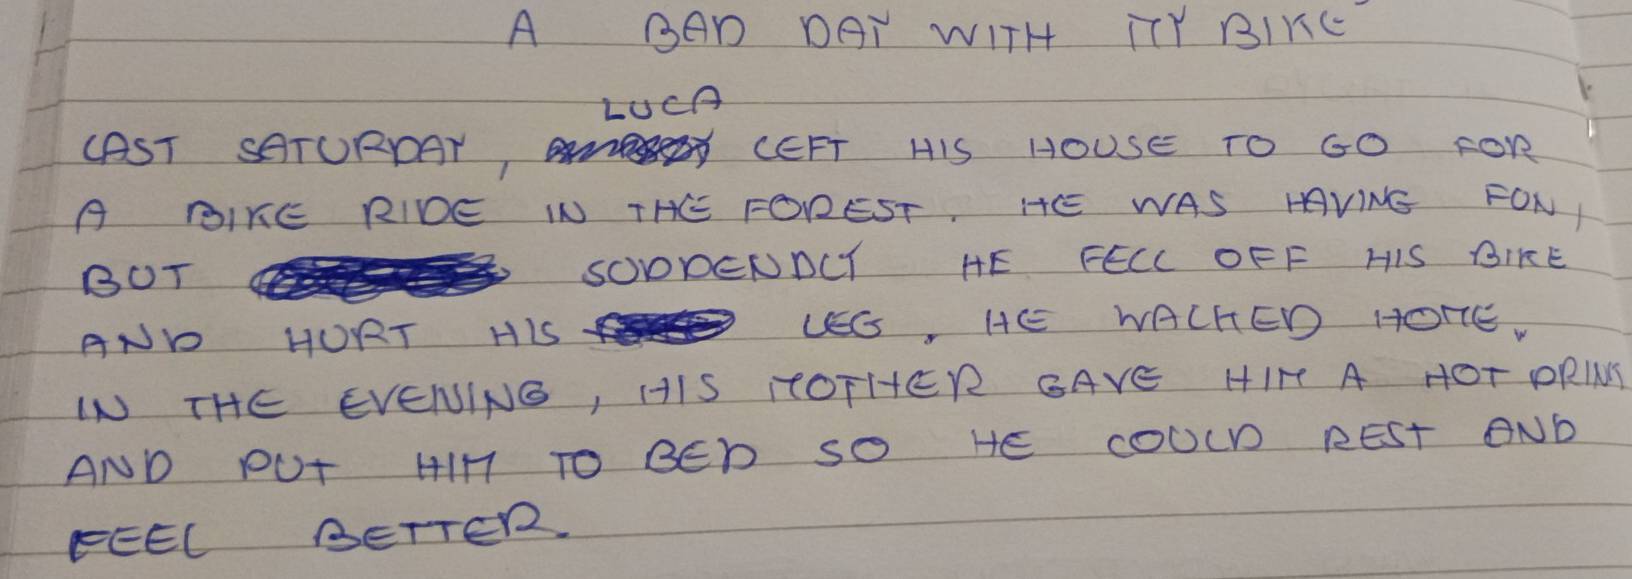 A BAD DAY WITH MY BIKE
LUCA
LAST SATURDAY, LEFT HIS HOUSE TO GO FOR
A BIKE RIDE IN THE FOREST. HE WAS HAVING FUN,
BUT SUDDENDLY HE FELL OFF HIS BIKE
AND HURT HIS LEG. HE WALKED HOME.
IN THE EVENING, HIS MOTHER GAVE HIM A HOT DRINK
AND PUT HIM TO BED SO HE COULD REST AND
FEEL BETTER.